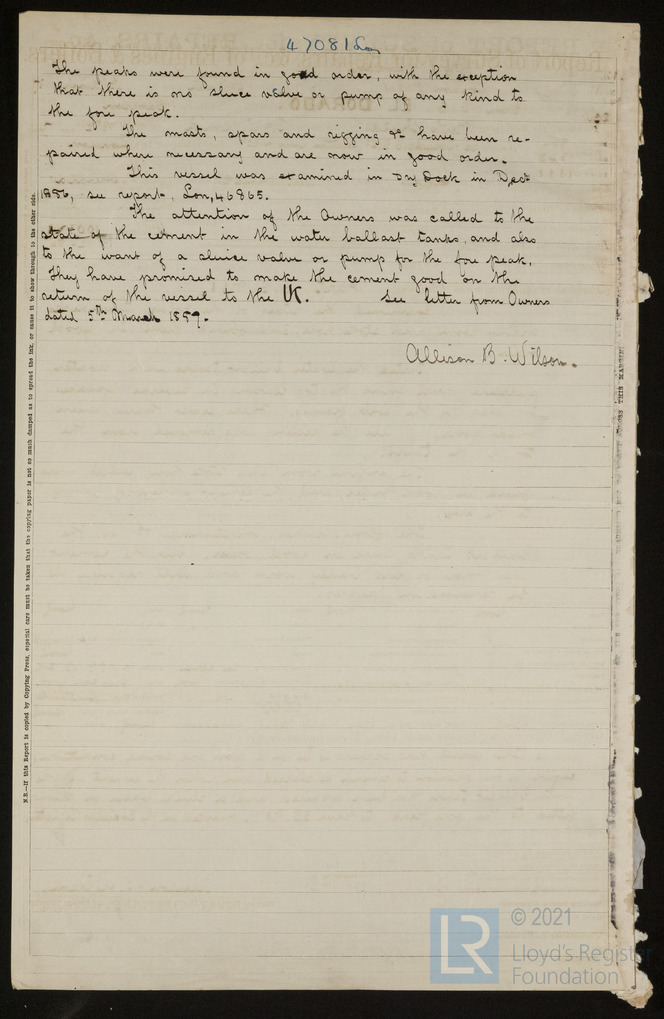 47081 Lon
The peaks were found in good order, with the exception
that there is no sluce valve or pump of any kind to
the fore peak.
The masts, spars and rigging &c have been re-
paired where necessary and are now in good order.
This vessel was examined in Dry Dock in Decr
see report, Lon, 46865.
The attention of the Owners was called to the
state of the cement in the water ballast tanks, and also
to the want of a sluice valve or pump for the fore peak,
They have promised to make the cement good on the
return of the vessel to the UK. See letter from Owners
dated 5th March
Allison B. Wilson.
N.B.—If this Report is copied by Copying Press, especial care must be taken that the copying paper is not so much damped as to spread the ink, or cause it to show through to the other side.
ACROSS THIS MARGIN
LR
© 2021
Lloyd's Register
Foundation